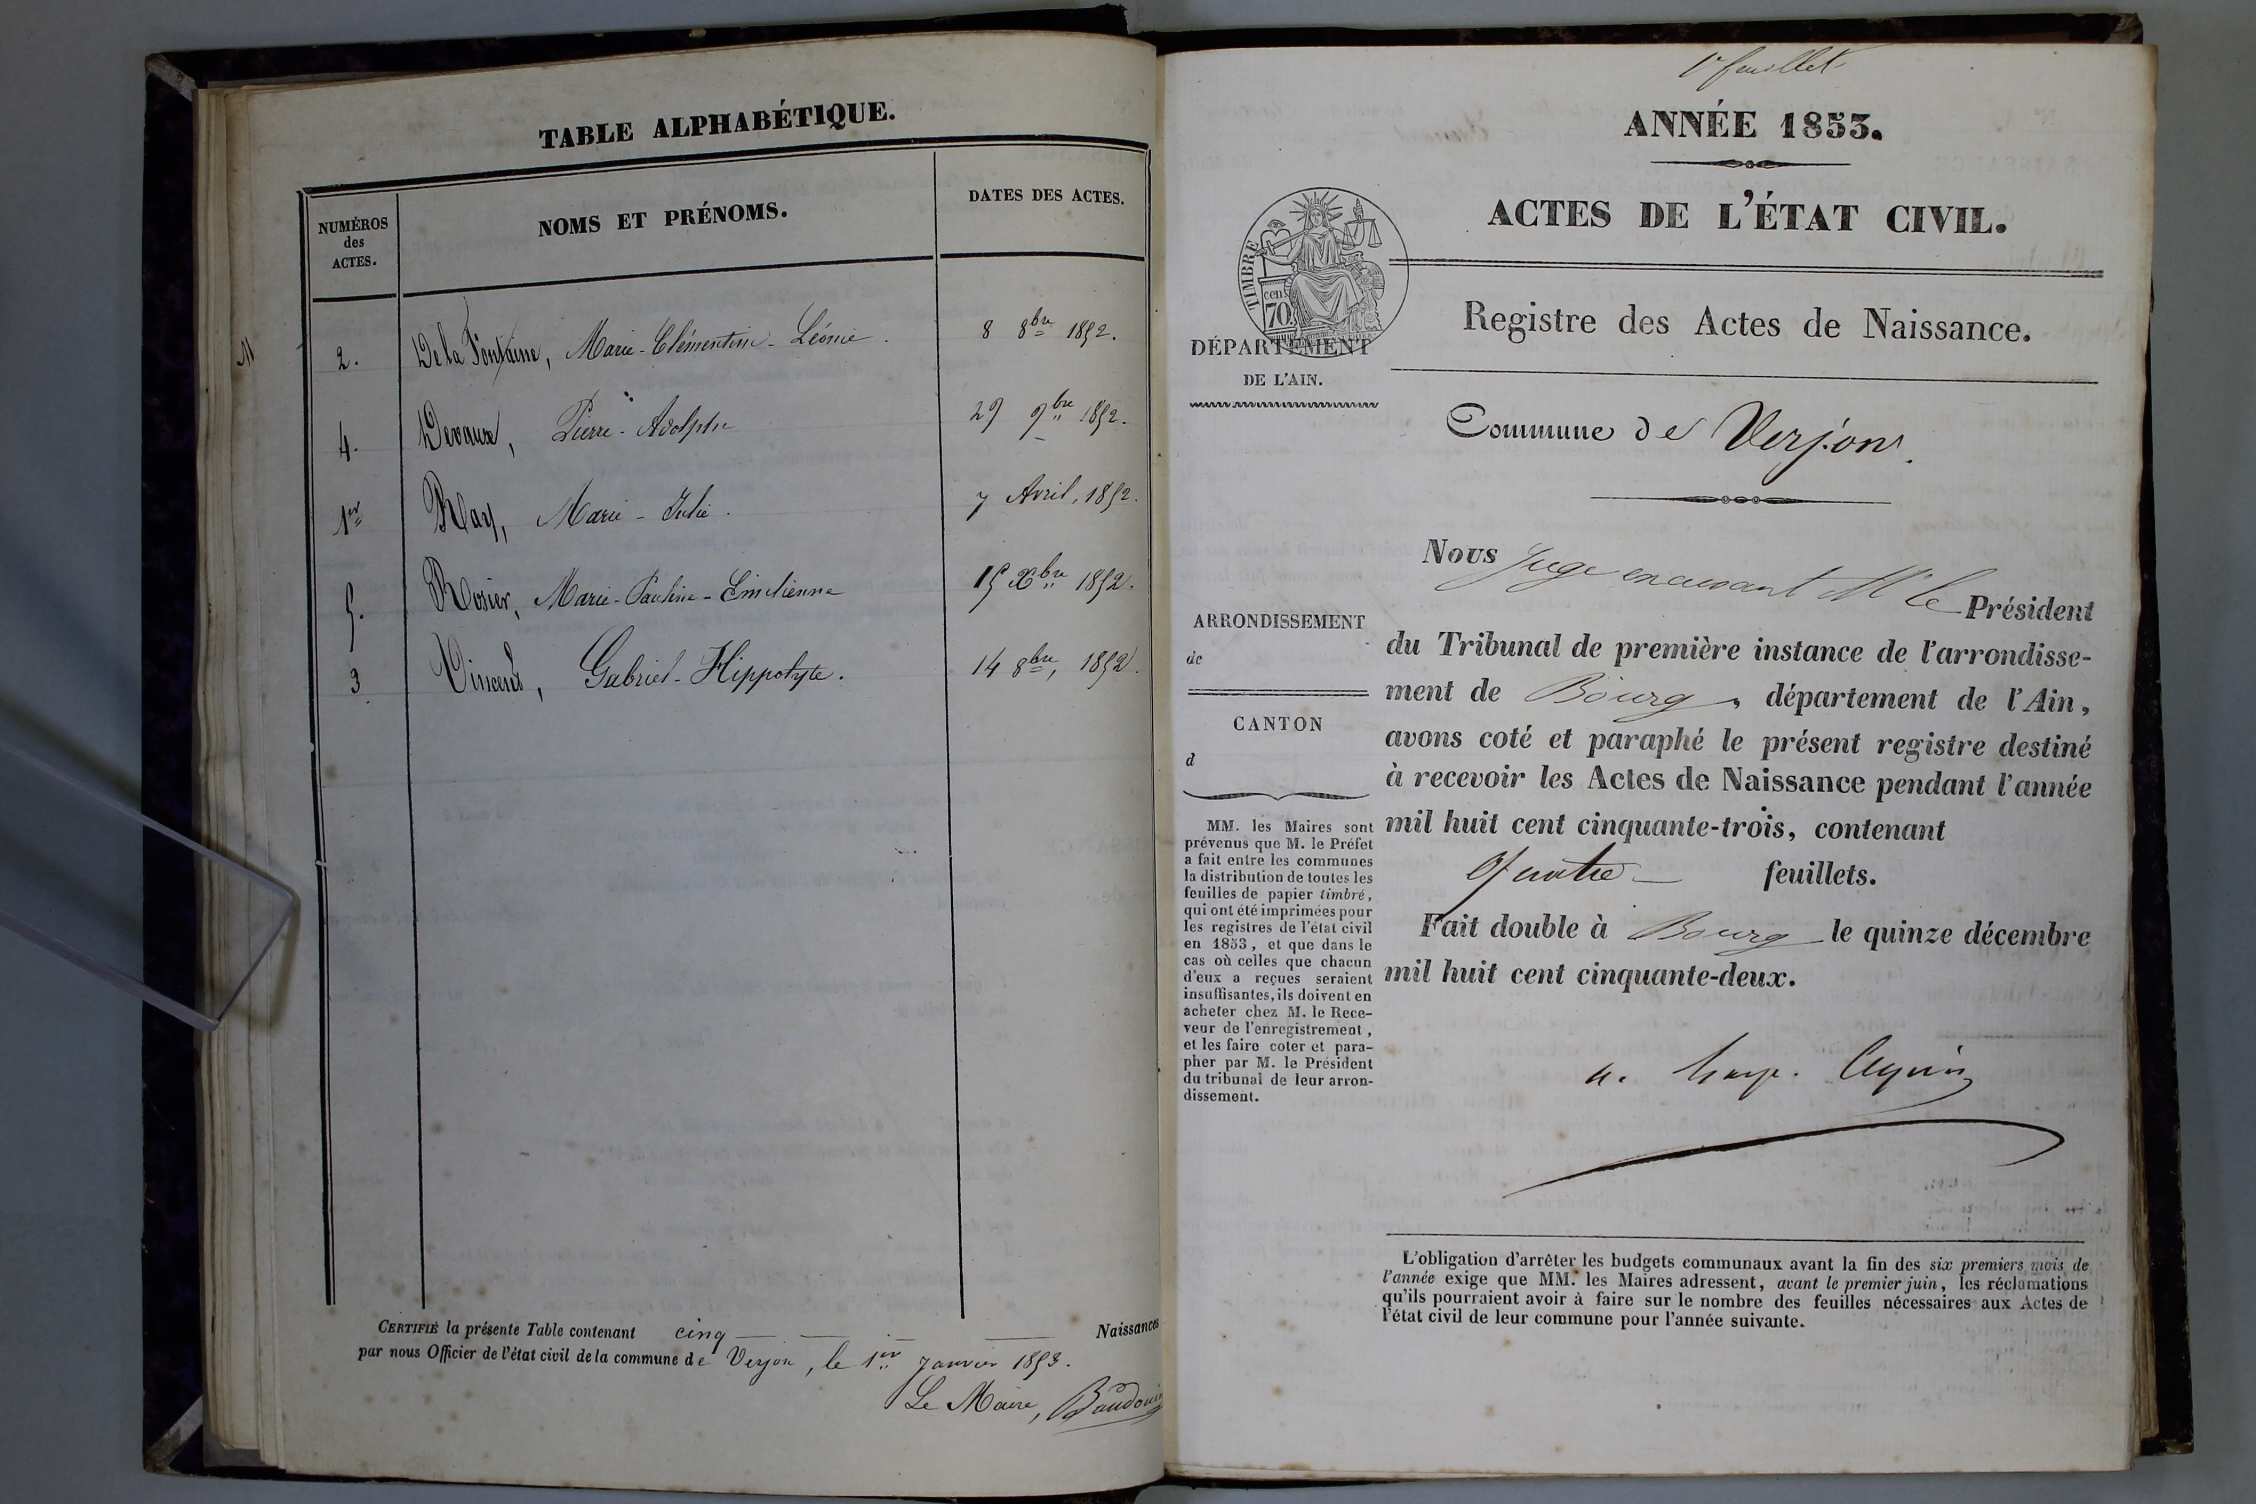 TABLE ALPHABÉTIQUE.
NUMÉROS
des
ACTES.
NOMS ET PRÉNOMS.
DATES DES ACTES.
2. De la Fontaine, Marie-Clémentine-Léonie. 8 8bre 1852.
4. Devaux, Pierre-Adolphe 29 9bre 1852.
1er Ray, Marie-Julie. 7 Avril, 1852.
5. Rosier, Marie-Pauline-Emilienne 15 Xbre 1852.
3 Vincent, Gabriel-Hippolyte. 14 8bre, 1852.
CERTIFIÉ la présente Table contenant cinq Naissances
par nous Officier de l'état civil de la commune de Verjon, le 1er Janvier 1853.
Le Maire, Baudouin
1er feuillet
ANNÉE 1853.
ACTES DE L'ÉTAT CIVIL.
TIMBRE
cent
70
Registre des Actes de Naissance.
DÉPARTEMENT
DE L'AIN.
Commune de Verjon.
ARRONDISSEMENT
de
CANTON
d
MM. les Maires sont
prévenus que M. le Préfet
a fait entre les communes
la distribution de toutes les
feuilles de papier timbré,
qui ont été imprimées pour
les registres de l'état civil
en 1853, et que dans le
cas où celles que chacun
d'eux a reçues seraient
insuffisantes, ils doivent en
acheter chez M. le Rece-
veur de l'enregistrement,
et les faire coter et para-
pher par M. le Président
du tribunal de leur arron-
dissement.
Nous Juge en causant Mr le Président
du Tribunal de première instance de l'arrondisse-
ment de Bourg, département de l'Ain,
avons coté et paraphé le présent registre destiné
à recevoir les Actes de Naissance pendant l'année
mil huit cent cinquante-trois, contenant
quatre feuillets.
Fait double à Bourg le quinze décembre
mil huit cent cinquante-deux.
L'obligation d'arrêter les budgets communaux avant la fin des six premiers mois de
l'année exige que MM. les Maires adressent, avant le premier juin, les réclamations
qu'ils pourraient avoir à faire sur le nombre des feuilles nécessaires aux Actes de
l'état civil de leur commune pour l'année suivante.